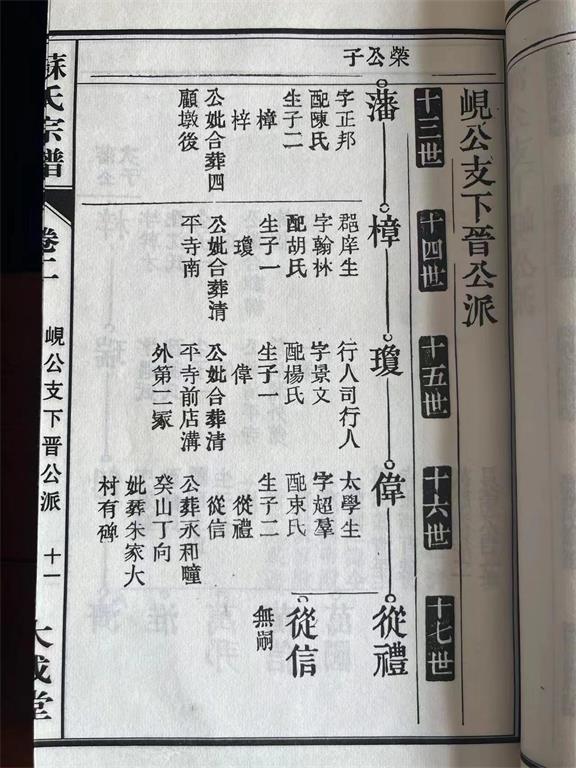 峴公支下晉公派
榮公子
十三世
藩
字正邦
配陳氏
生子二
樟
梓
公妣合葬四
顧墩後
十四世
樟
郡庠生
字翰林
配胡氏
生子一
瓊
公妣合葬清
平寺南
十五世
瓊
行人司行人
字景文
配楊氏
生子一
偉
公妣合葬清
平寺前店溝
外第二冢
十六世
偉
太學生
字超羣
配束氏
生子二
從禮
從信
公葬永和疃
癸山丁向
妣葬朱家大
村有碑
十七世
從禮
從信
無嗣
蘇氏宗譜
卷二
峴公支下晉公派
十一
大成堂